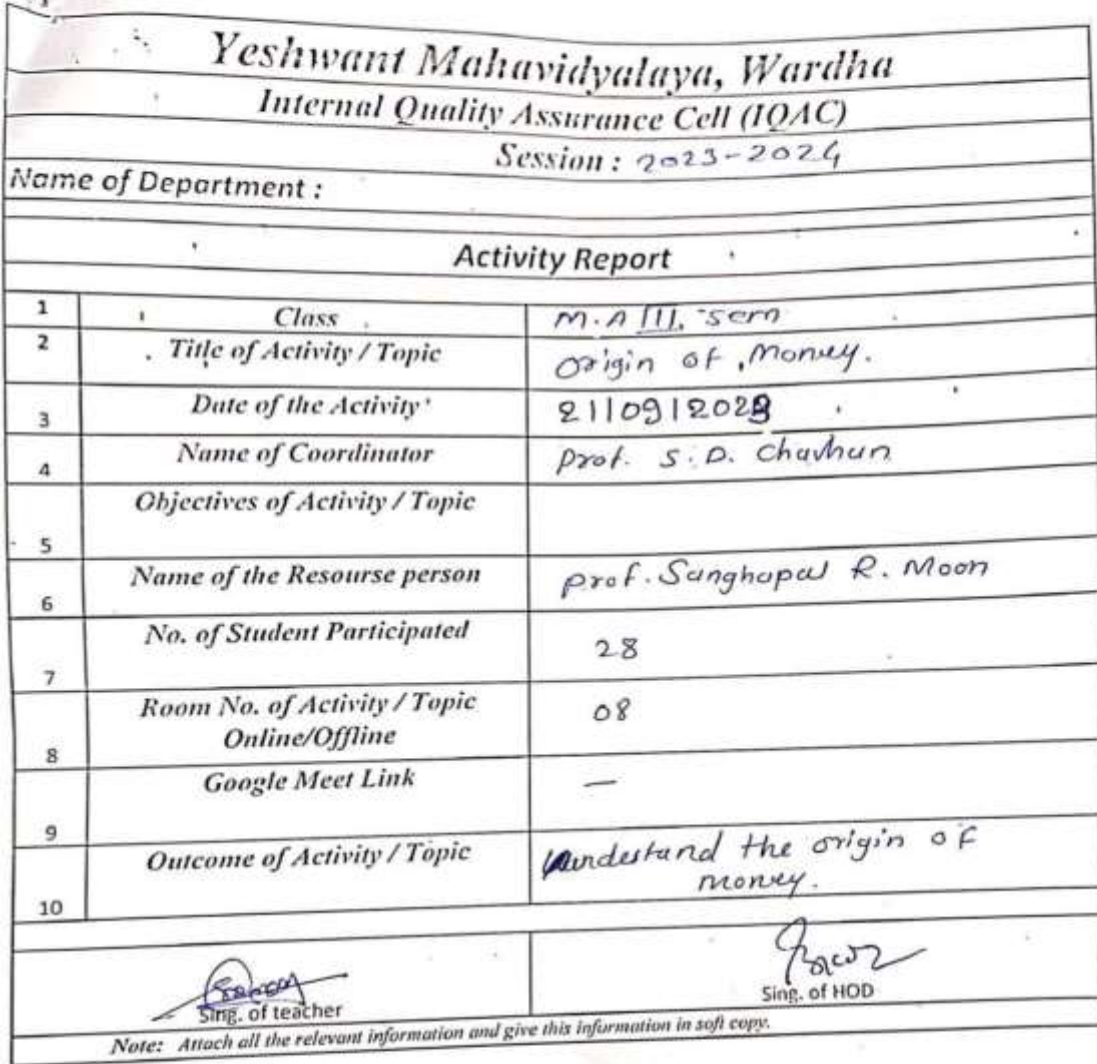 Yeshwant Mahavidyalaya, Wardha
Internal Quality Assurance Cell (IQAC)
Session : 2023-2024
Name of Department :
Activity Report
1 Class M.A III, sem
2 Title of Activity / Topic Origin of Money.
3 Date of the Activity 21/09/2023
4 Name of Coordinator Prof. S. D. Chavhan
5 Objectives of Activity / Topic
6 Name of the Resourse person Prof. Sanghapal R. Moon
7 No. of Student Participated 28
8 Room No. of Activity / Topic 08
Online/Offline
9 Google Meet Link —
10 Outcome of Activity / Topic undestand the origin of
money.
Sing. of teacher
Sing. of HOD
Note: Attach all the relevant information and give this information in soft copy.